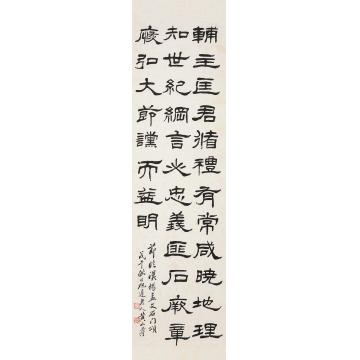 輔主匡君循禮有常咸曉地理
知世紀綱言必忠義匪石厥章
恢弘大節讜而益明
節臨漢楊孟文石門頌
戊午秋日